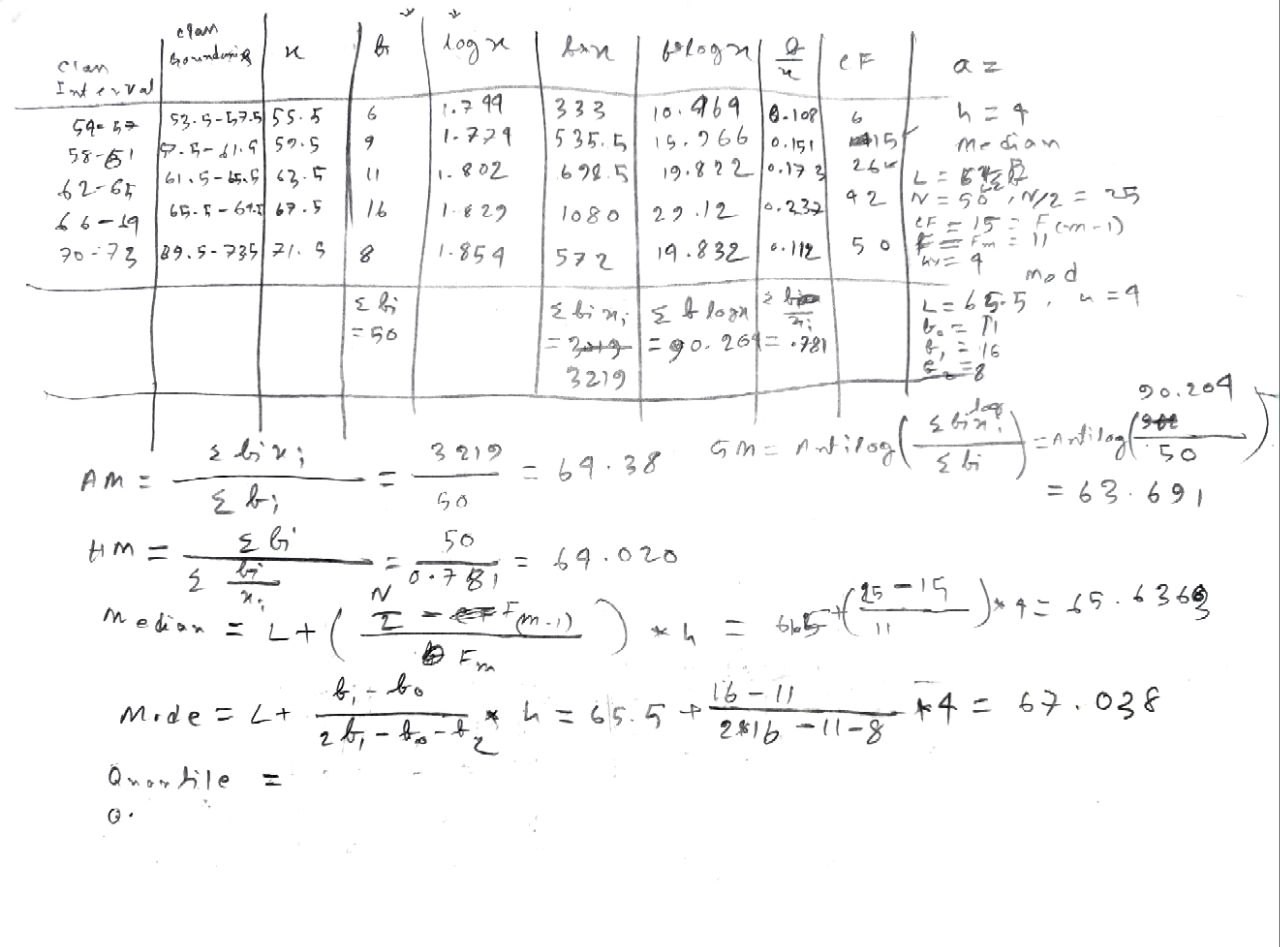 Class Interval | Class Boundaries | x | f | log x | f*x | f*log x | f/x | CF
54-57 | 53.5-57.5 | 55.5 | 6 | 1.744 | 333 | 10.464 | 0.108 | 6
58-61 | 57.5-61.5 | 59.5 | 9 | 1.774 | 535.5 | 15.966 | 0.151 | 15
62-65 | 61.5-65.5 | 63.5 | 11 | 1.802 | 698.5 | 19.822 | 0.173 | 26
66-69 | 65.5-69.5 | 67.5 | 16 | 1.829 | 1080 | 29.12 | 0.237 | 42
70-73 | 69.5-73.5 | 71.5 | 8 | 1.854 | 572 | 14.832 | 0.112 | 50
Σ fi = 50 | Σ fi xi = 3219 | Σ f log x = 90.204 | Σ fi/xi = .781
a =
h = 4
Median
N = 50, N/2 = 25
CF = 15 = F(m-1)
Fm = 11
h = 4
mod
L = 65.5, h = 4
f0 = 11
f1 = 16
f2 = 8
AM = Σ fi xi / Σ fi = 3219 / 50 = 64.38
GM = Antilog(Σ fi log xi / Σ fi) = Antilog(90.204 / 50)
= 63.691
HM = Σ fi / Σ fi/xi = 50 / 0.781 = 64.020
Median = L + ((N/2 - F(m-1)) / Fm) * h = + ((25 - 15) / 11) * 4 = 65.6363
Mode = L + (f1 - f0) / (2f1 - f0 - f2) * h = 65.5 + (16 - 11) / (2*16 - 11 - 8) * 4 = 67.038
Quartile =
Q.